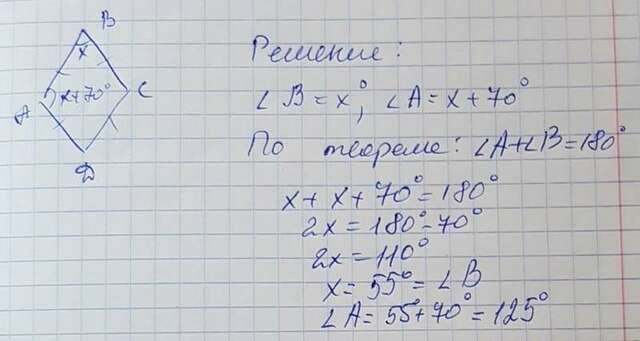 B
x
x+70°
A
C
D
Решение:
∠B=x°, ∠A=x+70°
По теореме: ∠A+∠B=180°
x+x+70°=180°
2x=180°-70°
2x=110°
x=55°=∠B
∠A=55°+70°=125°